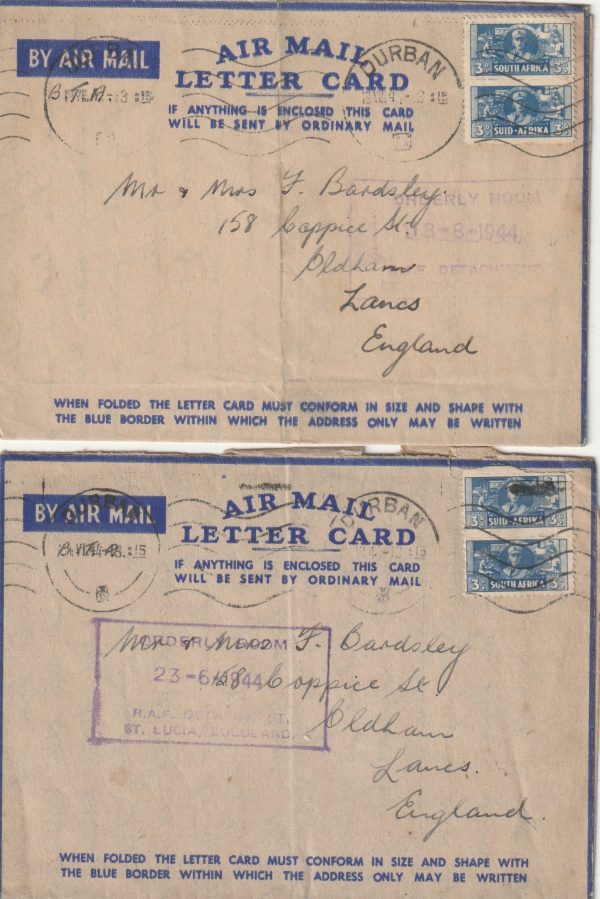 BY AIR MAIL
AIR MAIL
LETTER CARD
IF ANYTHING IS ENCLOSED THIS CARD
WILL BE SENT BY ORDINARY MAIL
DURBAN
3D SOUTH AFRICA 3D
3D SUID-AFRIKA 3D
Mr & Mrs F. Bardsley.
158 Coppice St.
Oldham
Lancs
England
ORDERLY ROOM
18-8-1944
DETACHMENT
WHEN FOLDED THE LETTER CARD MUST CONFORM IN SIZE AND SHAPE WITH
THE BLUE BORDER WITHIN WHICH THE ADDRESS ONLY MAY BE WRITTEN
BY AIR MAIL
AIR MAIL
LETTER CARD
IF ANYTHING IS ENCLOSED THIS CARD
WILL BE SENT BY ORDINARY MAIL
DURBAN
DURBAN
3D SUID-AFRIKA 3D
3D SOUTH AFRICA 3D
Mr & Mrs F. Bardsley
158 Coppice St.
Oldham
Lancs.
England.
ORDERLY ROOM
23-6-1944
R.A.F. DETACHMENT.
ST. LUCIA, ZULULAND.
WHEN FOLDED THE LETTER CARD MUST CONFORM IN SIZE AND SHAPE WITH
THE BLUE BORDER WITHIN WHICH THE ADDRESS ONLY MAY BE WRITTEN